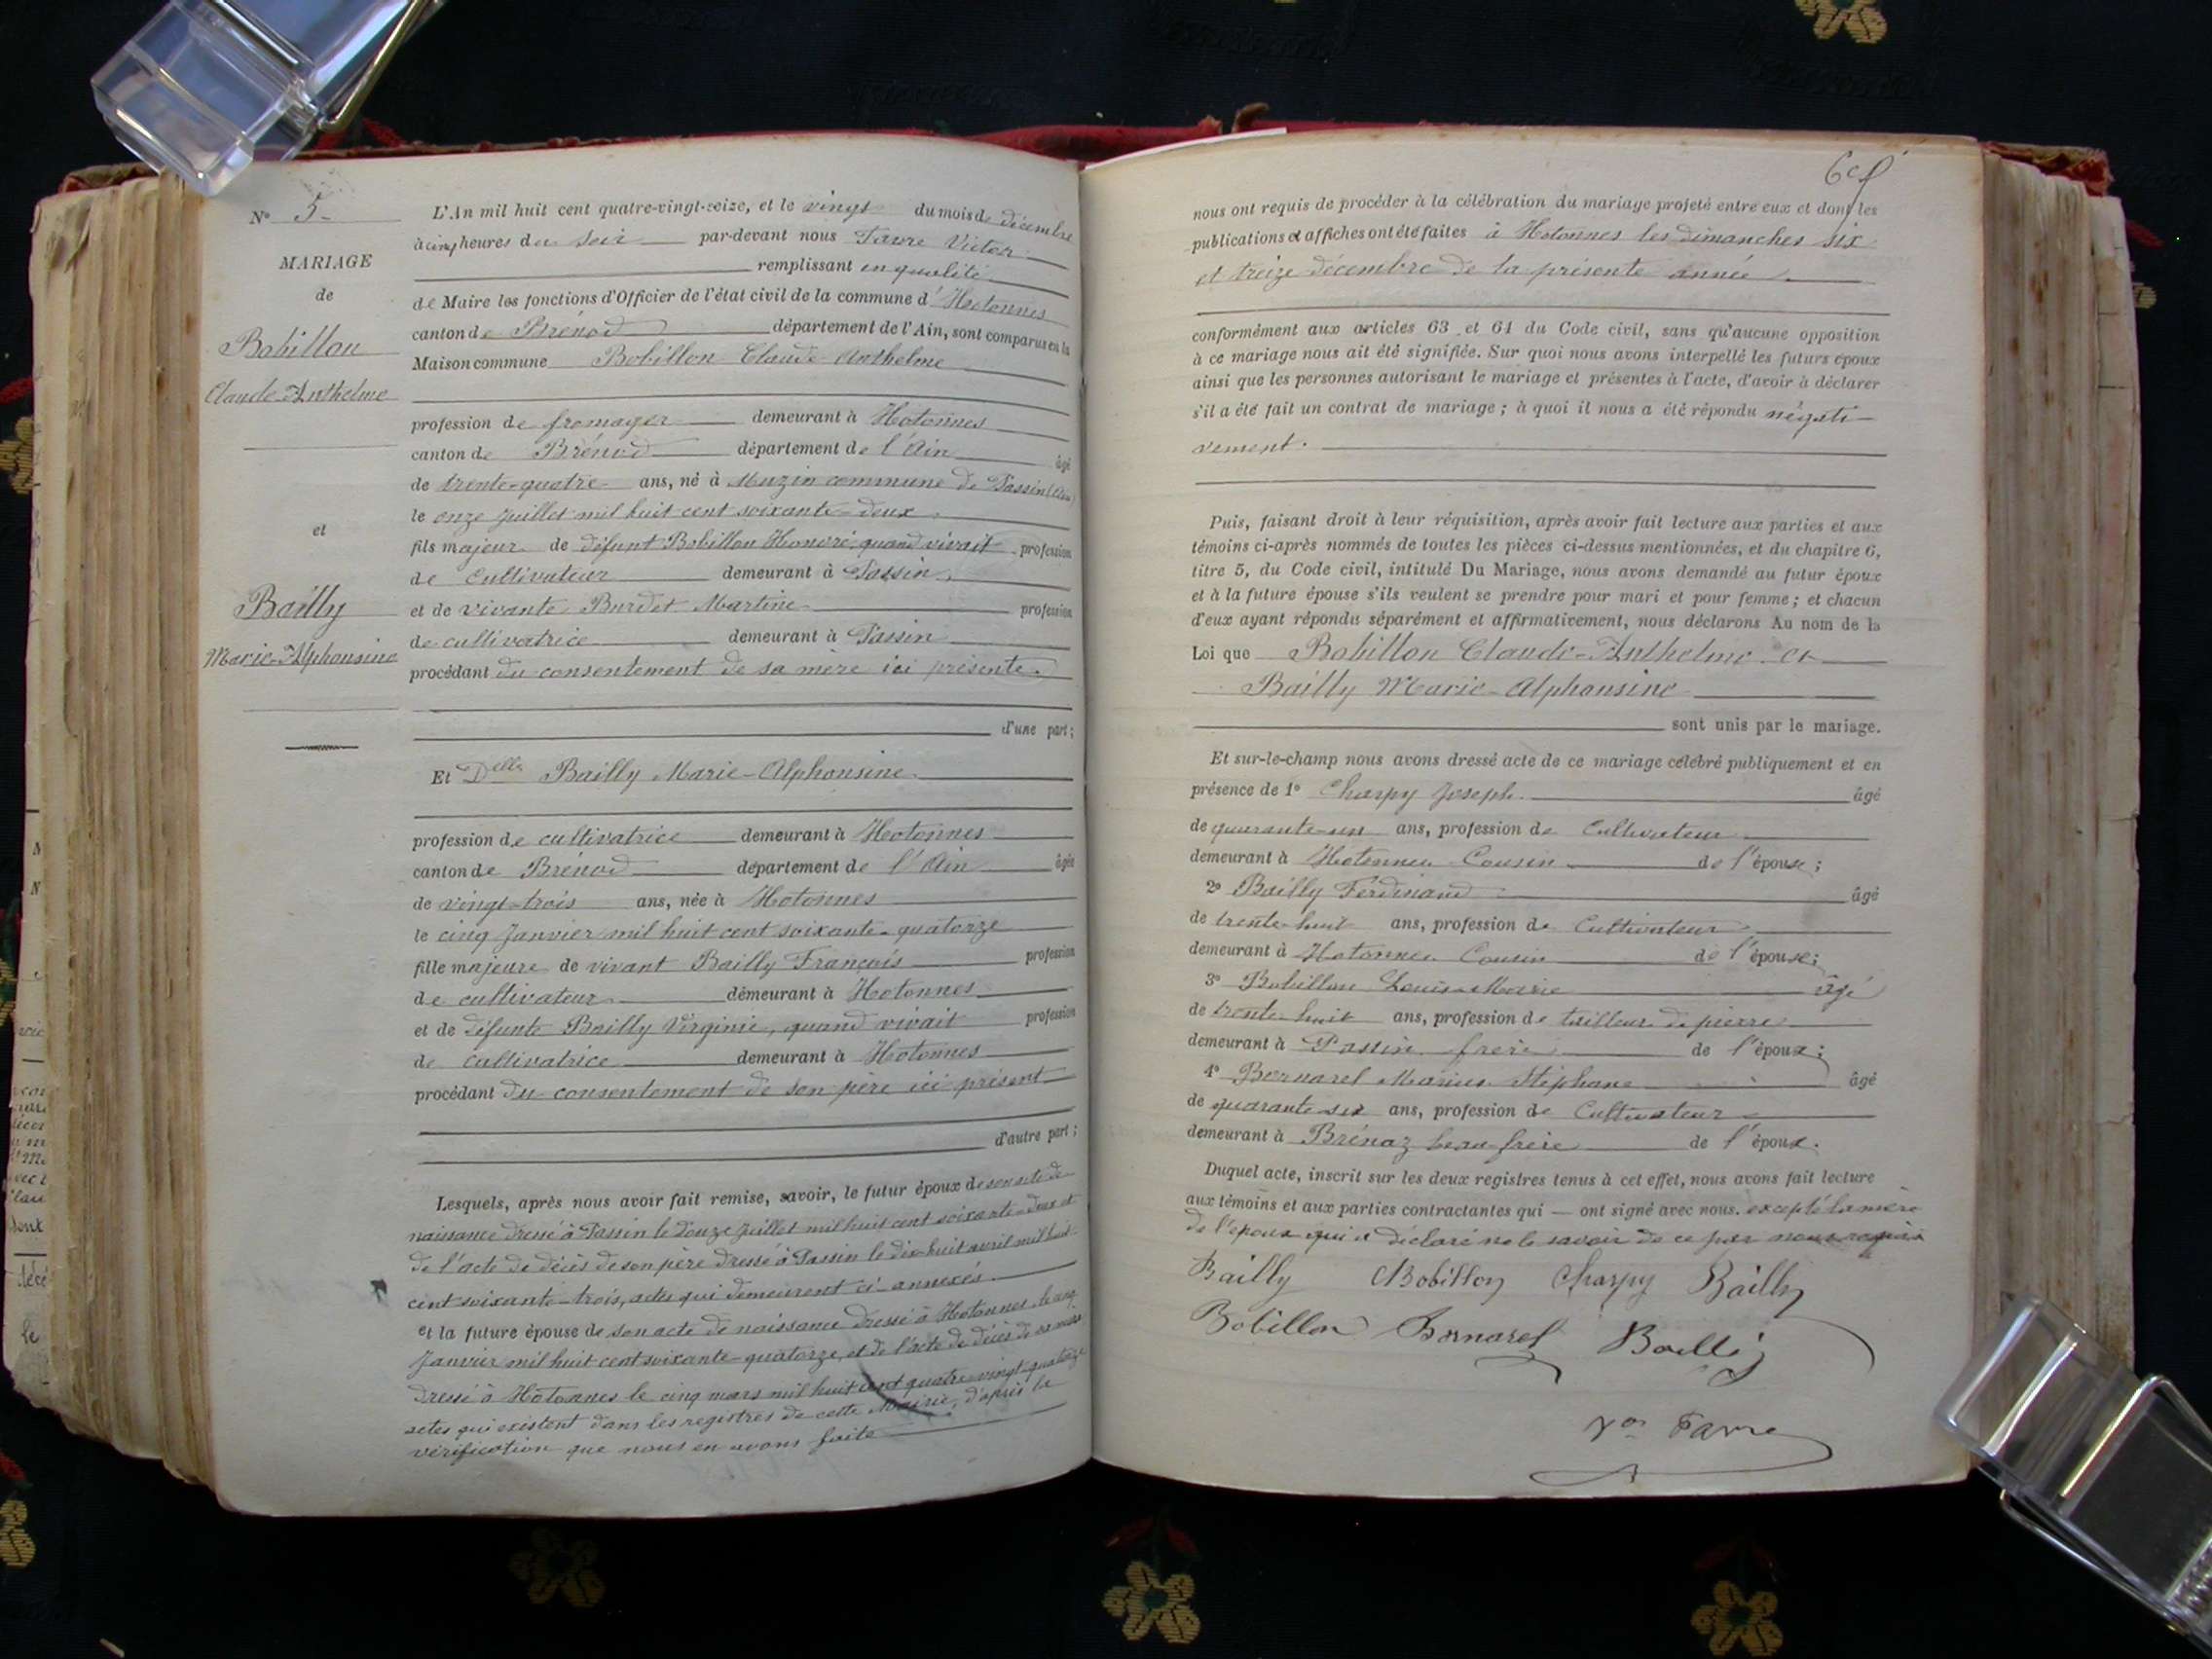 Nº 5
MARIAGE
de
Bobillon
Claude-Anthelme
et
Bailly
Marie-Alphonsine
L'An mil huit cent quatre-vingt-seize, et le vingt du mois de décembre
à cinq heures du soir par-devant nous Favre Victor
remplissant en qualité
de Maire les fonctions d'Officier de l'état civil de la commune d'Hotonnes
canton de Brénod département de l'Ain, sont comparus en la
Maison commune Bobillon Claude-Anthelme
profession de fromager demeurant à Hotonnes
canton de Brénod département de l'Ain âgé
de trente-quatre ans, né à Muzin commune de Passin (Ain)
le onze juillet mil huit cent soixante-deux
fils majeur de défunt Bobillon Honoré, quand vivait profession
de cultivateur demeurant à Passin,
et de vivante Burdet Martine profession
de cultivatrice demeurant à Passin
procédant du consentement de sa mère ici présente.
d'une part;
Et Delle Bailly Marie-Alphonsine.
profession de cultivatrice demeurant à Hotonnes
canton de Brénod département de l'Ain âgée
de vingt-trois ans, née à Hotonnes
le cinq Janvier mil huit cent soixante-quatorze
fille majeure de vivant Bailly François profession
de cultivateur demeurant à Hotonnes
et de défunte Bailly Virginie, quand vivait profession
de cultivatrice demeurant à Hotonnes
procédant du consentement de son père ici présent
d'autre part;
Lesquels, après nous avoir fait remise, savoir, le futur époux de son acte de
naissance dressé à Passin le douze juillet mil huit cent soixante-deux et
de l'acte de décès de son père dressé à Passin le dix-huit avril mil huit
cent soixante-trois, actes qui demeurent ci-annexés.
et la future épouse de son acte de naissance dressé à Hotonnes le cinq
Janvier mil huit cent soixante-quatorze, et de l'acte de décès de sa mère
dressé à Hotonnes le cinq mars mil huit cent quatre-vingt-quatorze
actes qui existent dans les registres de cette Mairie, d'après la
vérification que nous en avons faite
nous ont requis de procéder à la célébration du mariage projeté entre eux et dont les
publications et affiches ont été faites à Hotonnes les dimanches six
et treize décembre de la présente année.
conformément aux articles 63 et 64 du Code civil, sans qu'aucune opposition
à ce mariage nous ait été signifiée. Sur quoi nous avons interpellé les futurs époux
ainsi que les personnes autorisant le mariage et présentes à l'acte, d'avoir à déclarer
s'il a été fait un contrat de mariage; à quoi il nous a été répondu négati-
vement.
Puis, faisant droit à leur réquisition, après avoir fait lecture aux parties et aux
témoins ci-après nommés de toutes les pièces ci-dessus mentionnées, et du chapitre 6,
titre 5, du Code civil, intitulé Du Mariage, nous avons demandé au futur époux
et à la future épouse s'ils veulent se prendre pour mari et pour femme; et chacun
d'eux ayant répondu séparément et affirmativement, nous déclarons Au nom de la
Loi que Bobillon Claude-Anthelme et
Bailly Marie-Alphonsine
sont unis par le mariage.
Et sur-le-champ nous avons dressé acte de ce mariage célébré publiquement et en
présence de 1º Charpy Joseph. âgé
de quarante-un ans, profession de Cultivateur
demeurant à Hotonnes Cousin de l'épouse;
2º Bailly Ferdinand âgé
de trente-huit ans, profession de Cultivateur
demeurant à Hotonnes Cousin de l'épouse;
3º Bobillon Louis-Marie âgé
de trente-huit ans, profession de tailleur de pierre
demeurant à Passin frère de l'époux;
4º Bornarel Marius Stéphane âgé
de quarante-six ans, profession de Cultivateur
demeurant à Brénaz beau-frère de l'époux.
Duquel acte, inscrit sur les deux registres tenus à cet effet, nous avons fait lecture
aux témoins et aux parties contractantes qui — ont signé avec nous. excepté la mère
de l'époux qui a déclaré ne le savoir de ce par nous requis
Bailly Bobillon Charpy Bailly
Bobillon Bornarel Bailly
Vor Favre